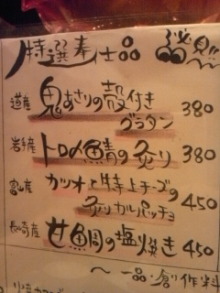 特選奉仕品
道産 鬼あさりの殻付き
グラタン 380
岩手産 トロ〆鯖の炙り 380
富山産 カツオと特上チーズの
炙りカルパッチョ 450
長崎産 甘鯛の塩焼き 450
〜一品・創作料